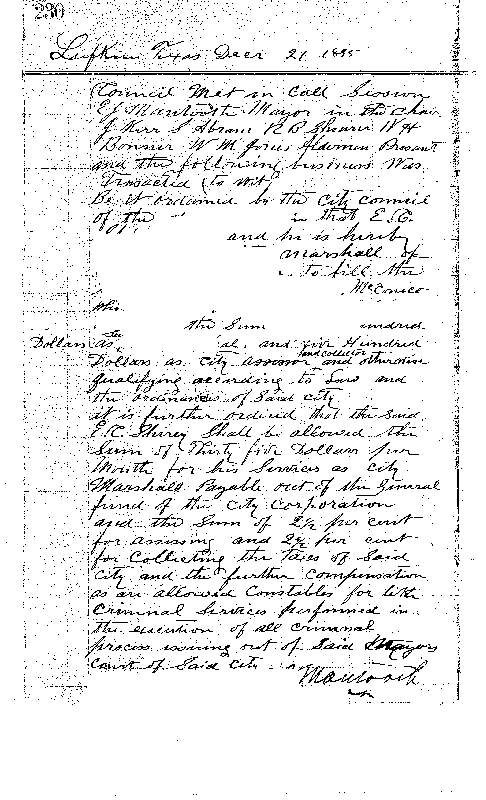 230
Lufkin Texas Decr 21 1895
Council Met in Call Session
Mantooth Mayor in the chair
J Kerr S Abram R B Shearer W H
Bonner W M Jones Aldermen Present
and the following business was
Transacted (to wit)
Be it ordained by the City Council
of the in that E. C.
and he is hereby
Marshall of
to fill the
McConico
the Sum undred
Dollars as al. and five Hundred
and collector
Dollars as City assessor and otherwise
qualifying according to Law and
the ordinances of Said City
it is further ordered that the Said
E. C. Shirey Shall be allowed the
Sum of Thirty five Dollars per
Month for his Services as City
Marshall Payable out of the General
fund of the City Corporation
and the Sum of 2½ per cent
for assessing and 2½ per cent
for Collecting the Taxes of Said
City and the further Compensation
as are allowed Constables for like
Criminal Services performed in
the execution of all criminal
process issuing out of Said Mayors
Court of Said City
Mantooth